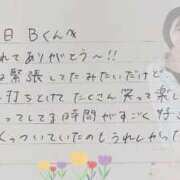 日 Bくんへ
れてありがとう〜!!
は緊張してたみたいだけど
打ちとけてたくさん笑って楽し
してます時間がすごく好き
くっついていたのもうれしかった